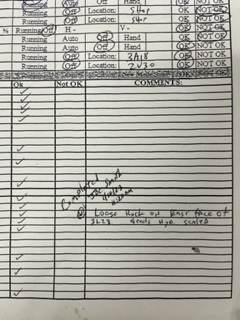 Running Auto Off Hand OK NOT OK
Running Off Location: Shop OK NOT OK
Running Off Location: Shop OK NOT OK
% Running Off H - V - OK NOT OK
Running Auto Off Hand OK NOT OK
Running Auto Off Hand OK NOT OK
Running Off Location: 3A18 OK NOT OK
Running Off Location: 2430 OK NOT OK
Ok Not OK COMMENTS:
Completed
Loose Rock on East face of
3L28 Needs Hyd. Scaled